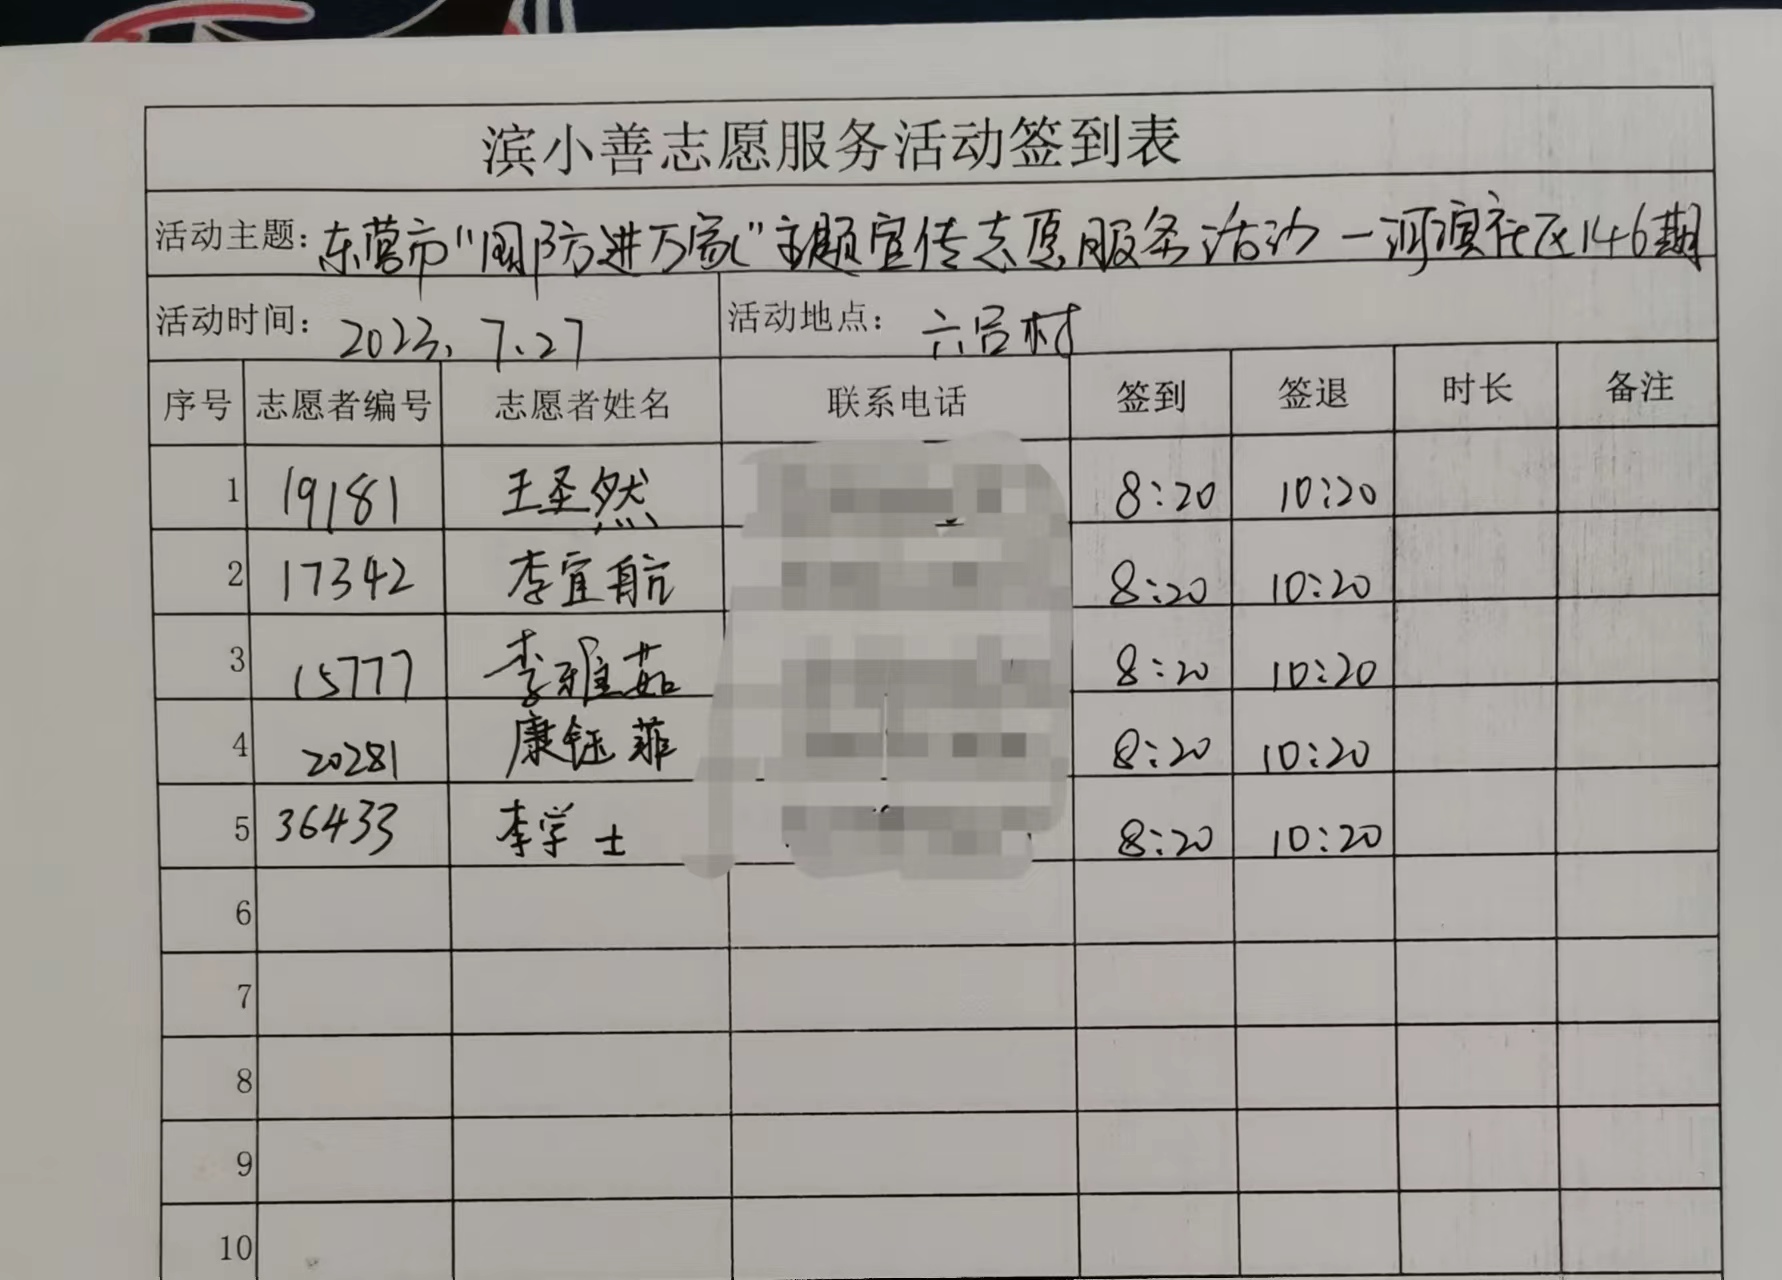 滨小善志愿服务活动签到表
活动主题: 东营市"国防进万家"主题宣传志愿服务活动一河滨社区146期
活动时间: 2023.7.27 活动地点: 六合村
序号 志愿者编号 志愿者姓名 联系电话 签到 签退 时长 备注
1 19181 王圣然 8:20 10:20
2 17342 李宜航 8:20 10:20
3 15777 李雅茹 8:20 10:20
4 20281 康钰菲 8:20 10:20
5 36433 李学士 8:20 10:20
6
7
8
9
10